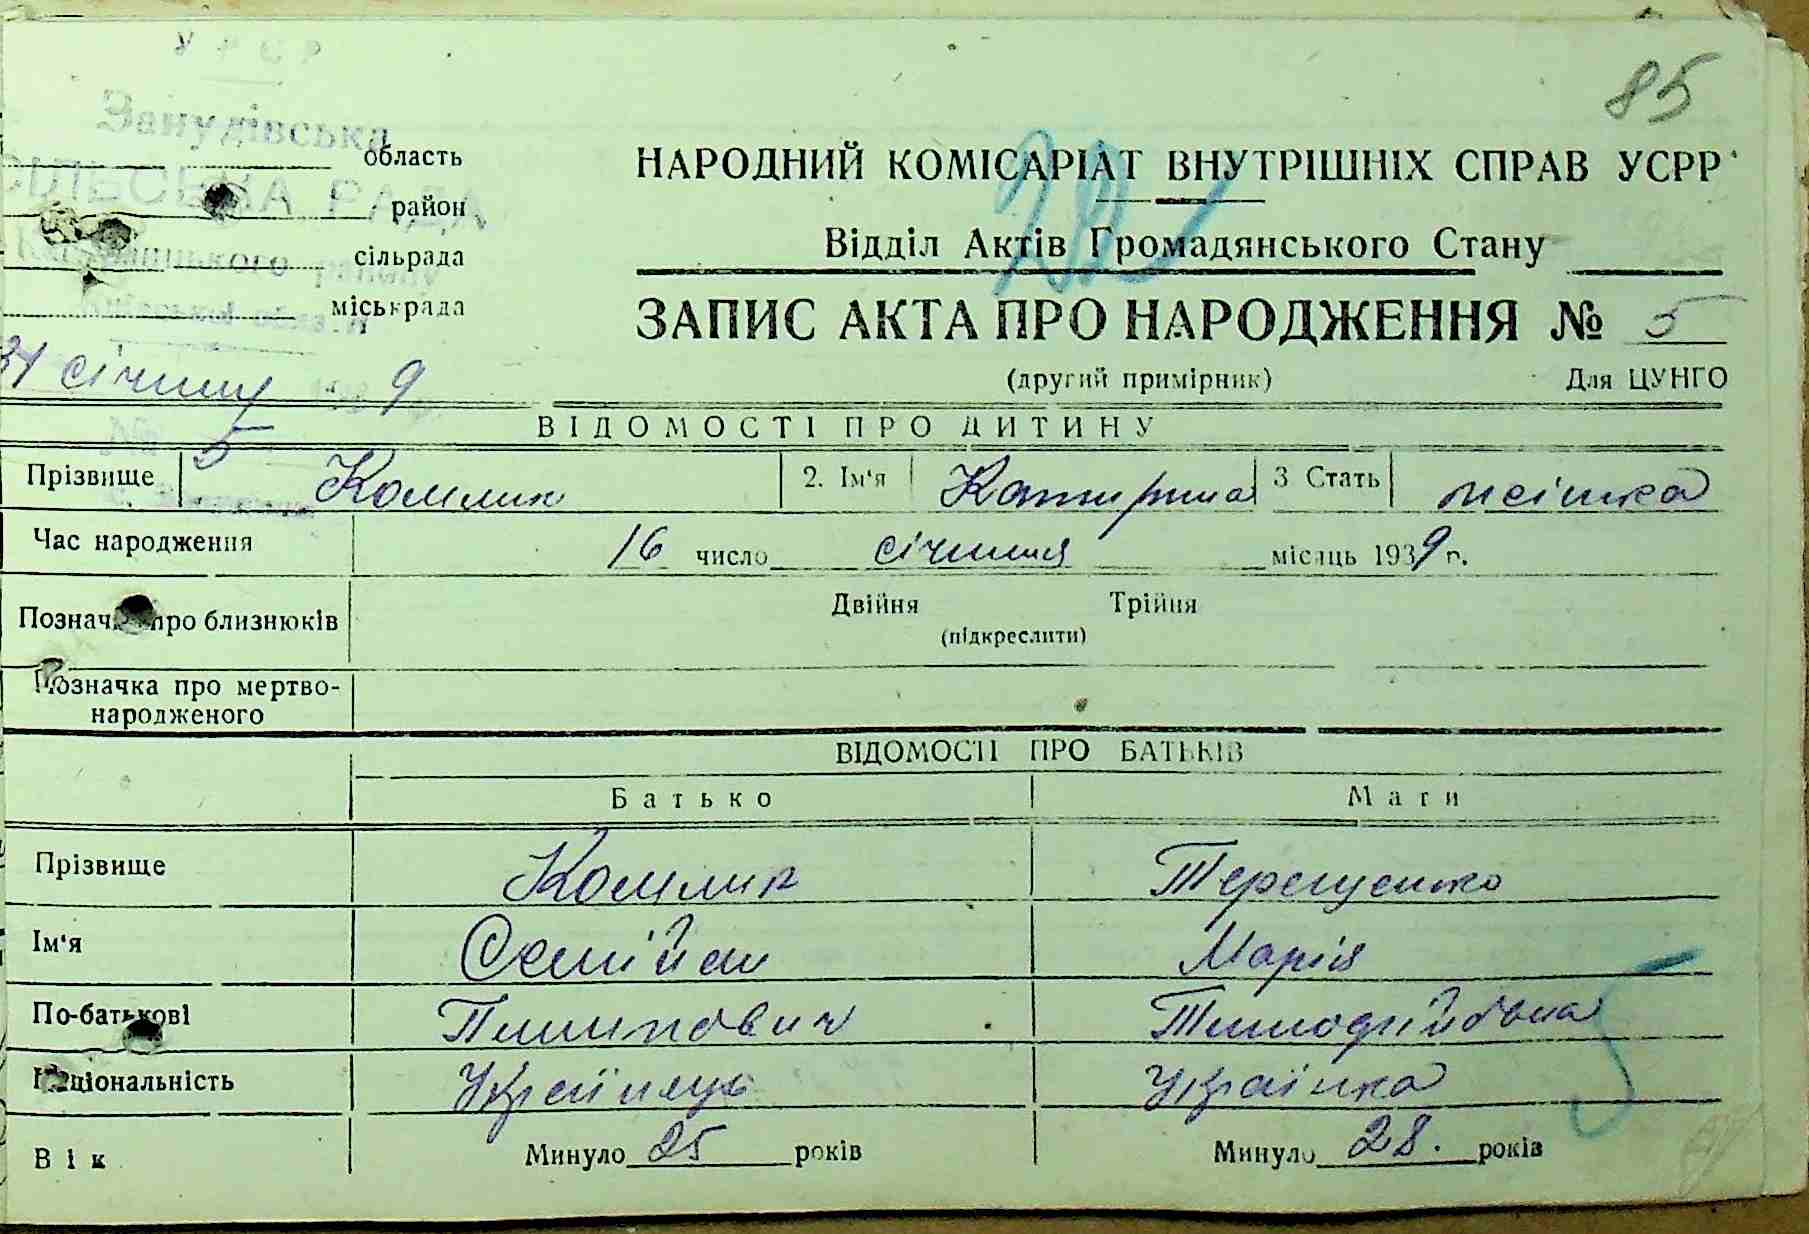 УРСР
85
Занудівська
область
СІЛЬСЬКА РАДА
район
сільрада
міськрада
НАРОДНИЙ КОМІСАРІАТ ВНУТРІШНІХ СПРАВ УСРР
Відділ Актів Громадянського Стану
ЗАПИС АКТА ПРО НАРОДЖЕННЯ № 5
31 січня 9
(другий примірник) Для ЦУНГО
№ 5
ВІДОМОСТІ ПРО ДИТИНУ
Прізвище Комлик 2. Ім'я Катирина 3 Стать жінка
Час народження 16 число січиня місяць 1939 г.
Позначка про близнюків Двійня Трійня
(підкреслити)
Позначка про мертво-
народженого
ВІДОМОСТІ ПРО БАТЬКІВ
Батько Мати
Прізвище Комлик Терещенко
Ім'я Семійон Марія
По-батькові Пилипович Тимофійовна
Національність Українець Українка
Вік Минуло 25 років Минуло 28. років